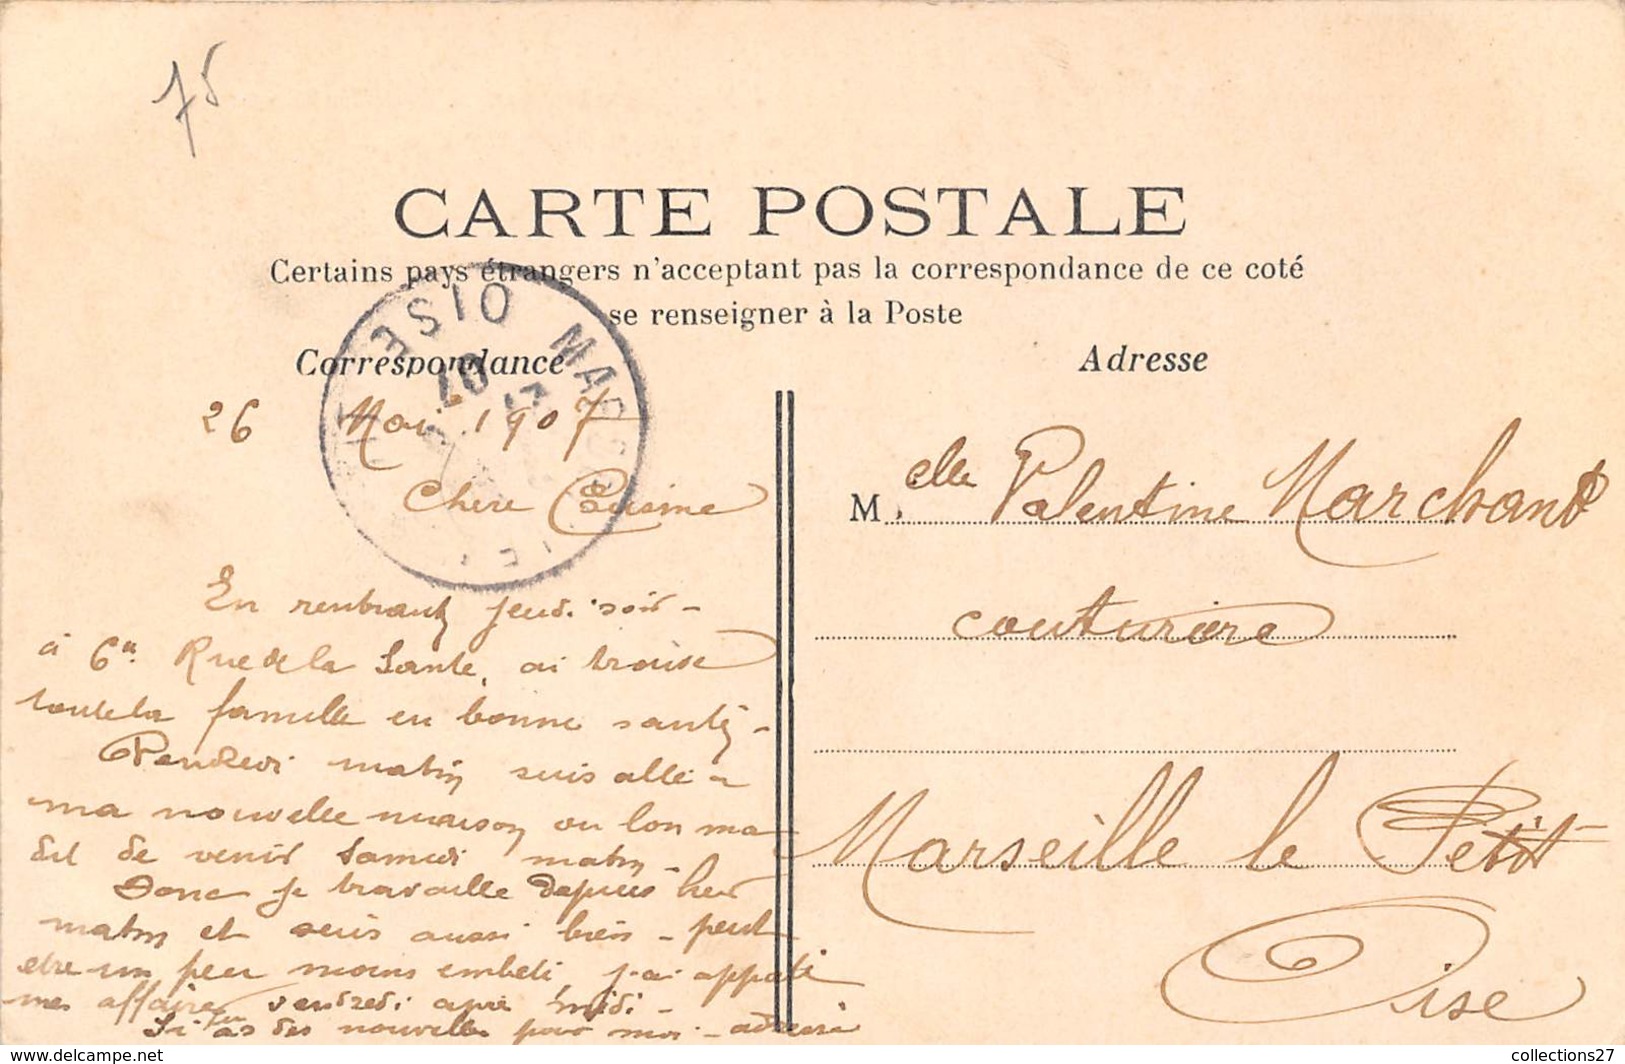 75
CARTE POSTALE
Certains pays étrangers n'acceptant pas la correspondance de ce coté
se renseigner à la Poste
Correspondance
OISE
07
26 Mai 1907
Chere Cousine
En rentrant jeudi soir
à 6h Rue de la Sante, ai trouve
toute la famille en bonne santé
Vendredi matin suis allé a
ma nouvelle maison ou lon ma
dit de venir Samedi matin
Donc je travaille depuis hier
matin et suis aussi bien peut
etre un peu moins embeté j'ai apporté
mes affaires vendredi apré midi
Si tu as des nouvelles pour moi adresse
Adresse
Melle Valentine Marchand
couturiere
Marseille le Petit
Oise
collections27